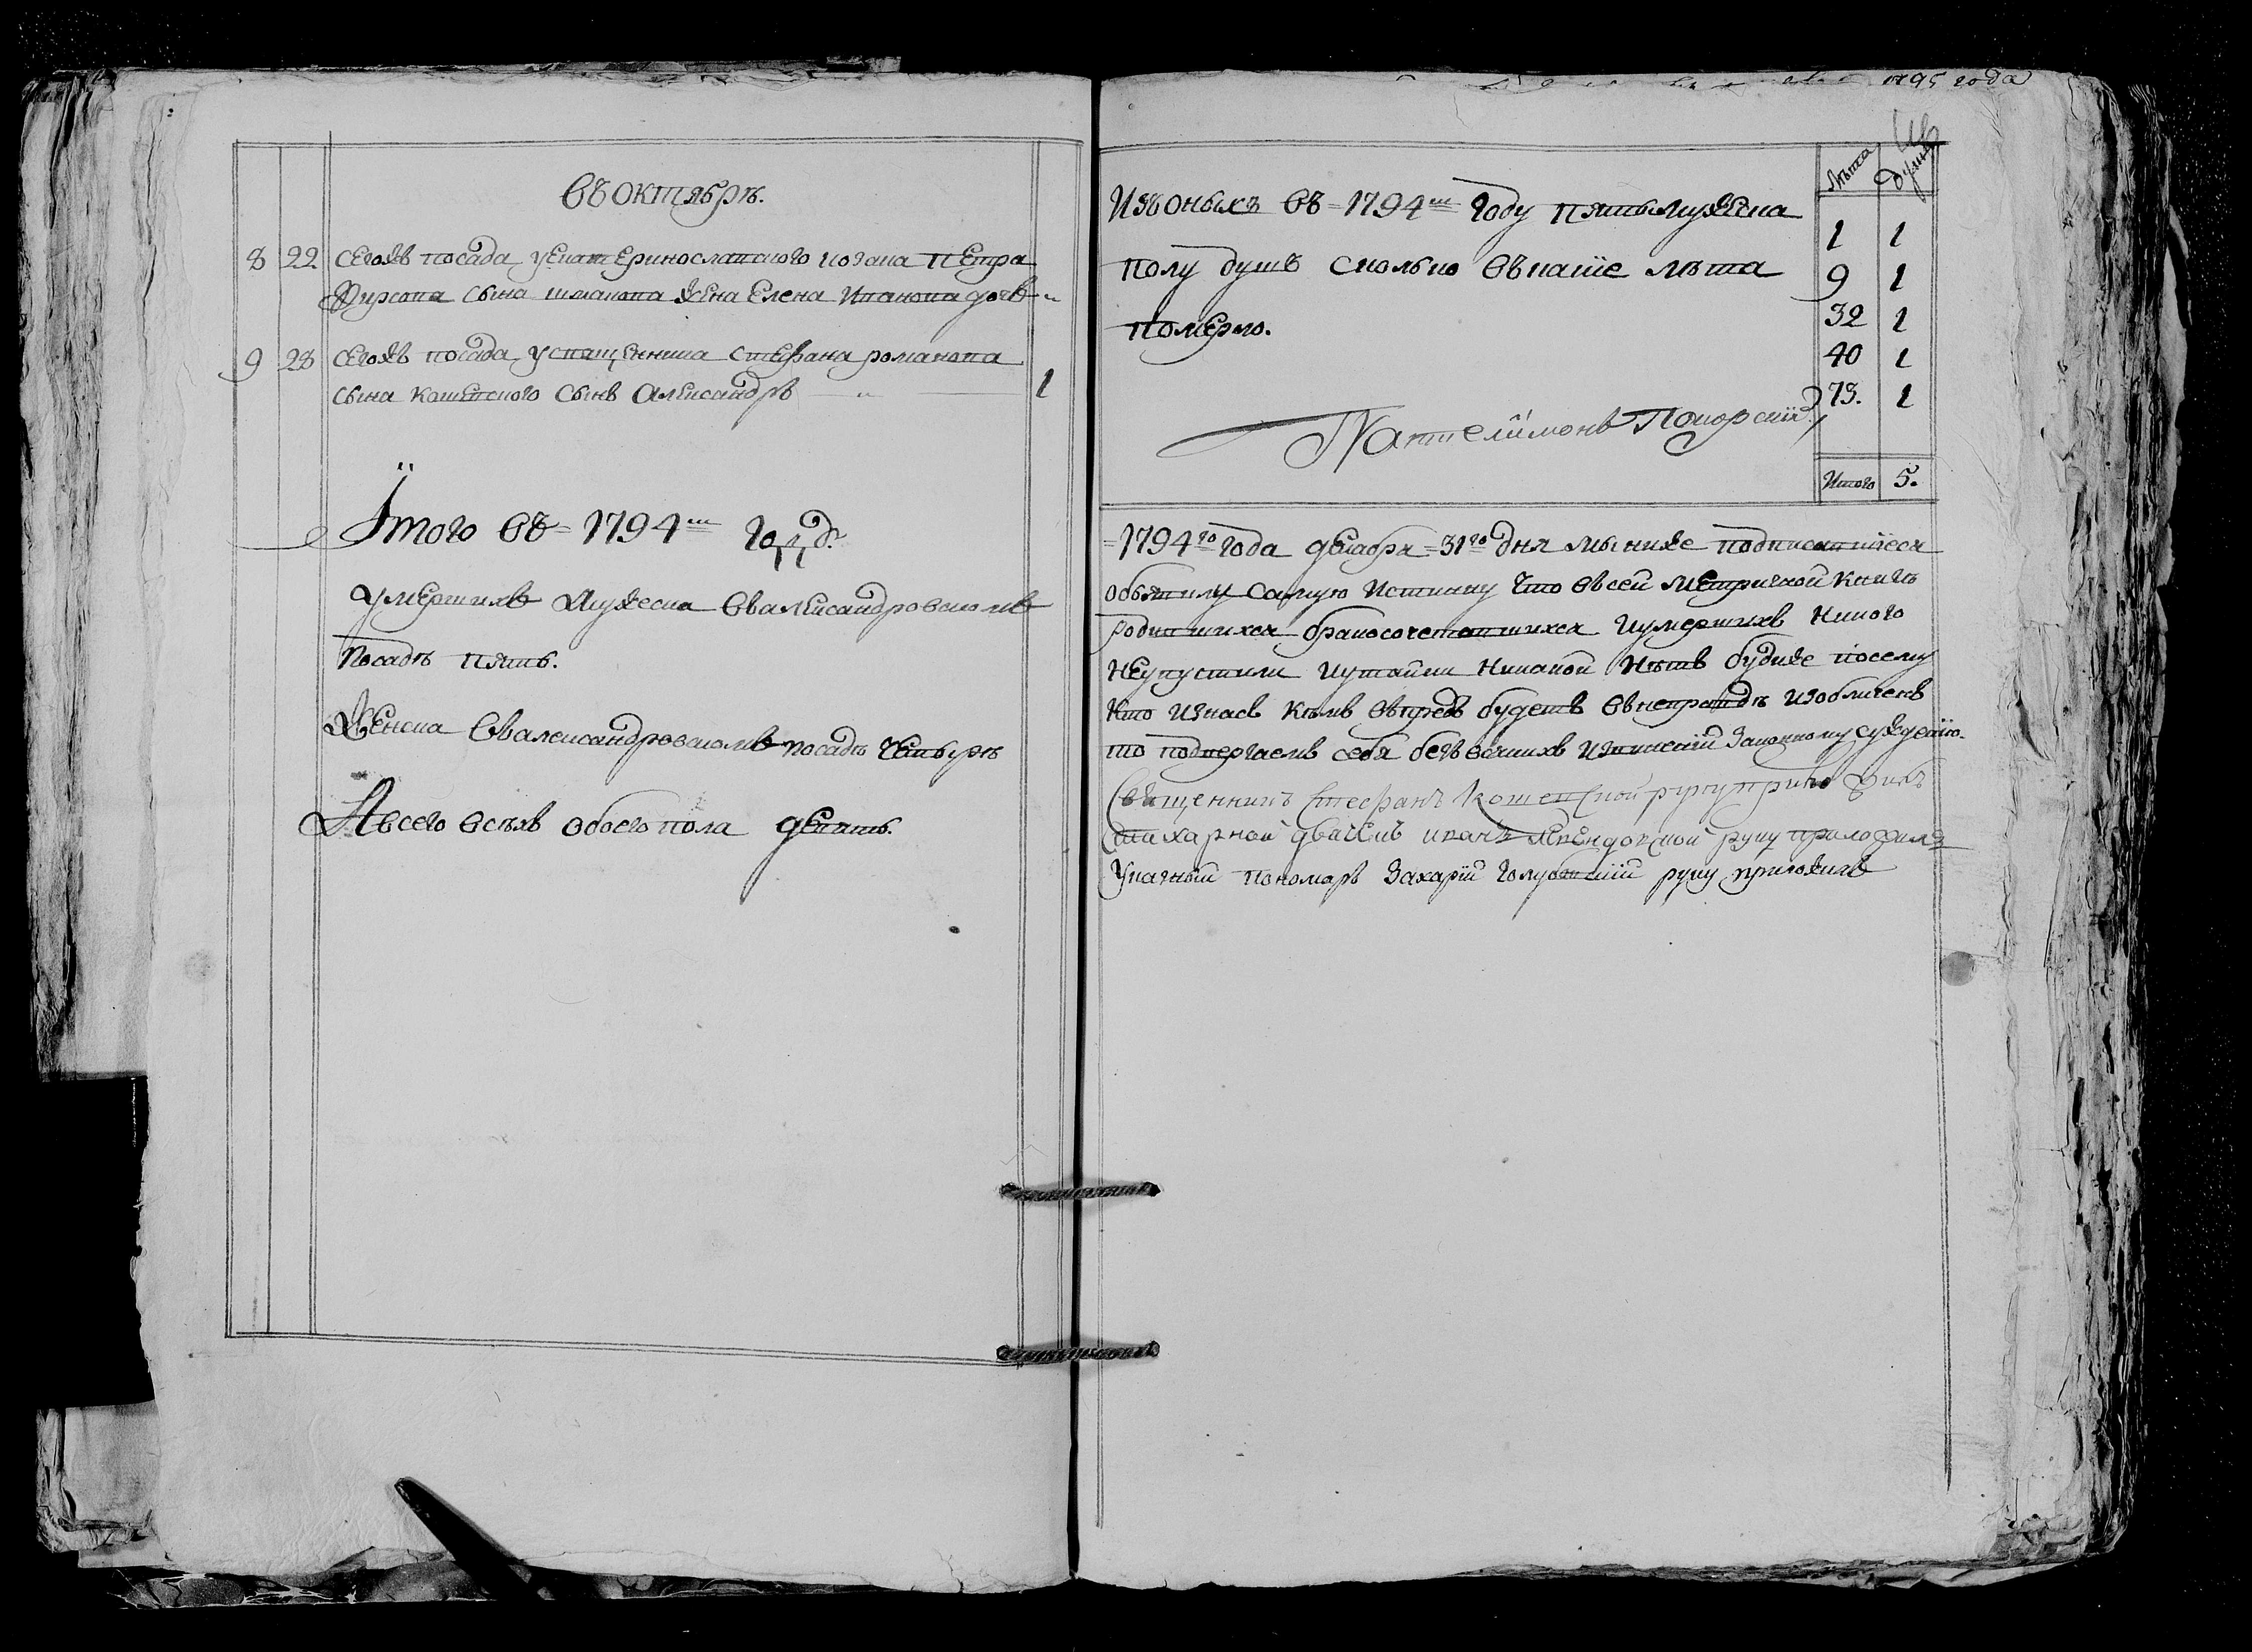 въ октябрѣ.
8 22. сегожъ посада у екатеринославскаго козака петра
Фирсова сына шманова жена Елена Иванова дочь
9 28 сегожъ посада у священника стефана романова
сына кошевского сынъ Александръ 1
Итого въ 1794м годѣ
умершихъ мужеска въ александровскомъ
посадѣ пять.
Женска въ александровскомъ посадѣ четырѣ
А всего всѣхъ обоего пола девять.
1795 года
Изъ оныхъ въ 1794м году пять мужеска
полу душъ сколько въ какие лѣта
померло.
Пантелимонъ Покорскій
лѣта душъ
1 1
9 1
32 1
40 1
73. 1
Итого 5.
1794го года декабря 31го дня мы ниже подписавшіеся
объявили самую истинну что въ сей метричной книгѣ
родившихся бракосочетавшихся и умершихъ никого
не упустили и утайки никакой нѣтъ буди же посему
кто из насъ кѣмъ впредъ будетъ в неправдѣ изобличенъ
то подвергаемъ себя безъ всякихъ изысканій законному суждению.
Священникъ Стефанъ Кошевской руку приложилъ
Стихарной дьячекъ иванъ руку приложилъ
Указный пономарь Захарій Голубовскій руку приложилъ